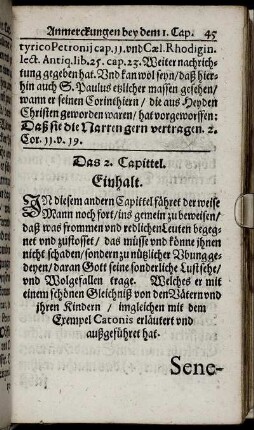 Anmerckungen bey dem 1. Cap. 45
tyrico Petronij cap. 11. vnd Cæl. Rhodigin.
lect. Antiq. lib. 25. cap. 23. Weiter nachrich-
tung gegeben hat. Vnd kan wol seyn/ daß hier-
hin auch S. Paulus etzlicher massen gesehen/
wann er seinen Corinthiern / die aus Heyden
Christen geworden waren / hat vorgeworffen:
Daß sie die Narren gern vertragen. 2.
Cor. 11. v. 19.
Das 2. Capittel.
Einhalt.
IN diesem andern Capittel fähret der weise
Mann noch fort/ ins gemein zu beweisen/
daß was frommen vnd redlichen Leuten begeg-
net vnd zustosset / das müsse vnd könne ihnen
nicht schaden/ sondern zu nützlicher Vbung ge-
deyen/ daran Gott seine sonderliche Lust sehe/
vnd Wolgefallen trage. Welches er mit
einem schönen Gleichniß von den Vätern vnd
ihren Kindern / imgleichen mit dem
Exempel Catonis erläutert vnd
außgeführet hat.
Sene-